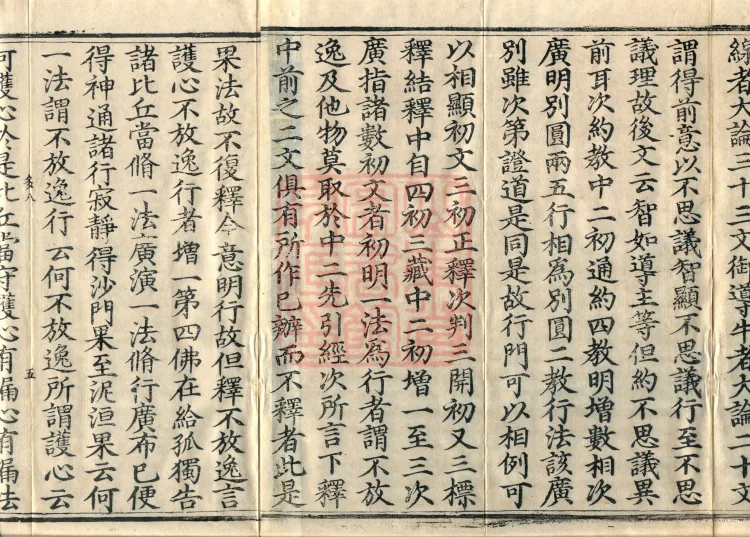 緣者大論三十三文御導牛者大論二十文
謂得前意以不思議智顯不思議行至不思
議理故後文云智如導主等但約不思議異
前耳次約教中二初通約四教明增數相次
廣明別圓兩五行相為別圓二教行法該廣
別雖次第證道是同是故行門可以相例可
以相顯初文三初正釋次判三開初又三標
釋結釋中自四初三藏中二初增一至三次
廣指諸數初文者初明一法為行者謂不放
逸及他物莫取於中二先引經次所言下釋
中前之二文俱有所作已辦而不釋者此是
果法故不復釋今意明行故但釋不放逸言
護心不放逸行者增一第四佛在給孤獨告
諸比丘當脩一法廣演一法脩行廣布已便
得神通諸行寂靜得沙門果至泥洹果云何
一法謂不放逸行云何不放逸所謂護心云
可護心於是比丘當守護心有漏心有漏法
五